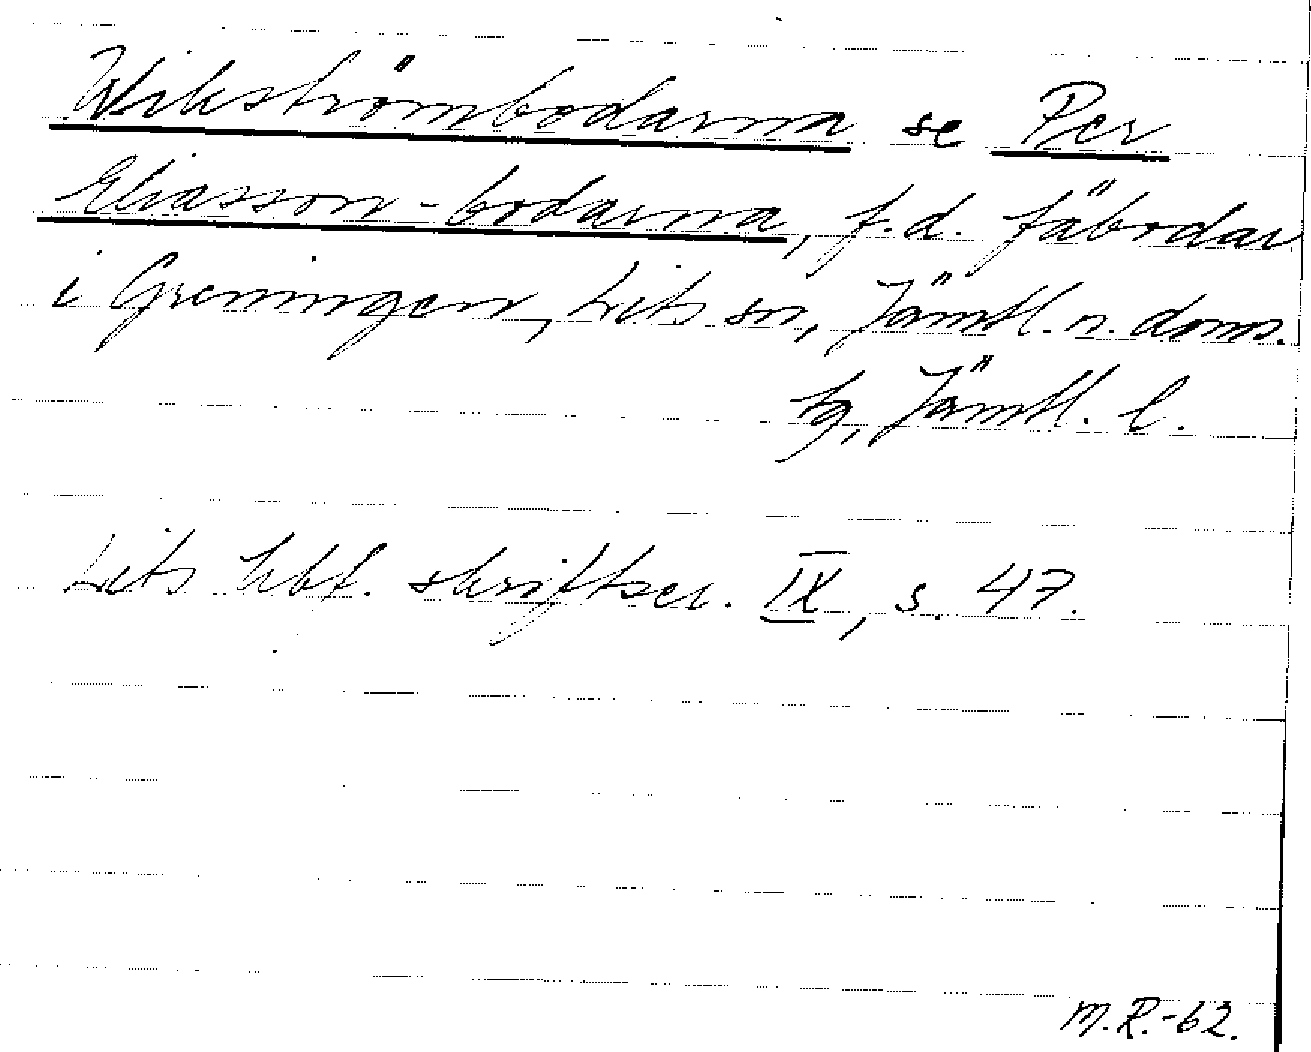 Wikströmbodarna se Per
Eliasson-bodarna, f.d. fäbodar
i Greningen, Lits sn, Jämtl. n. doms.
tg, Jämtl. l.
Lits hbf. skriftser. IX, s. 47.
M.R.-62.